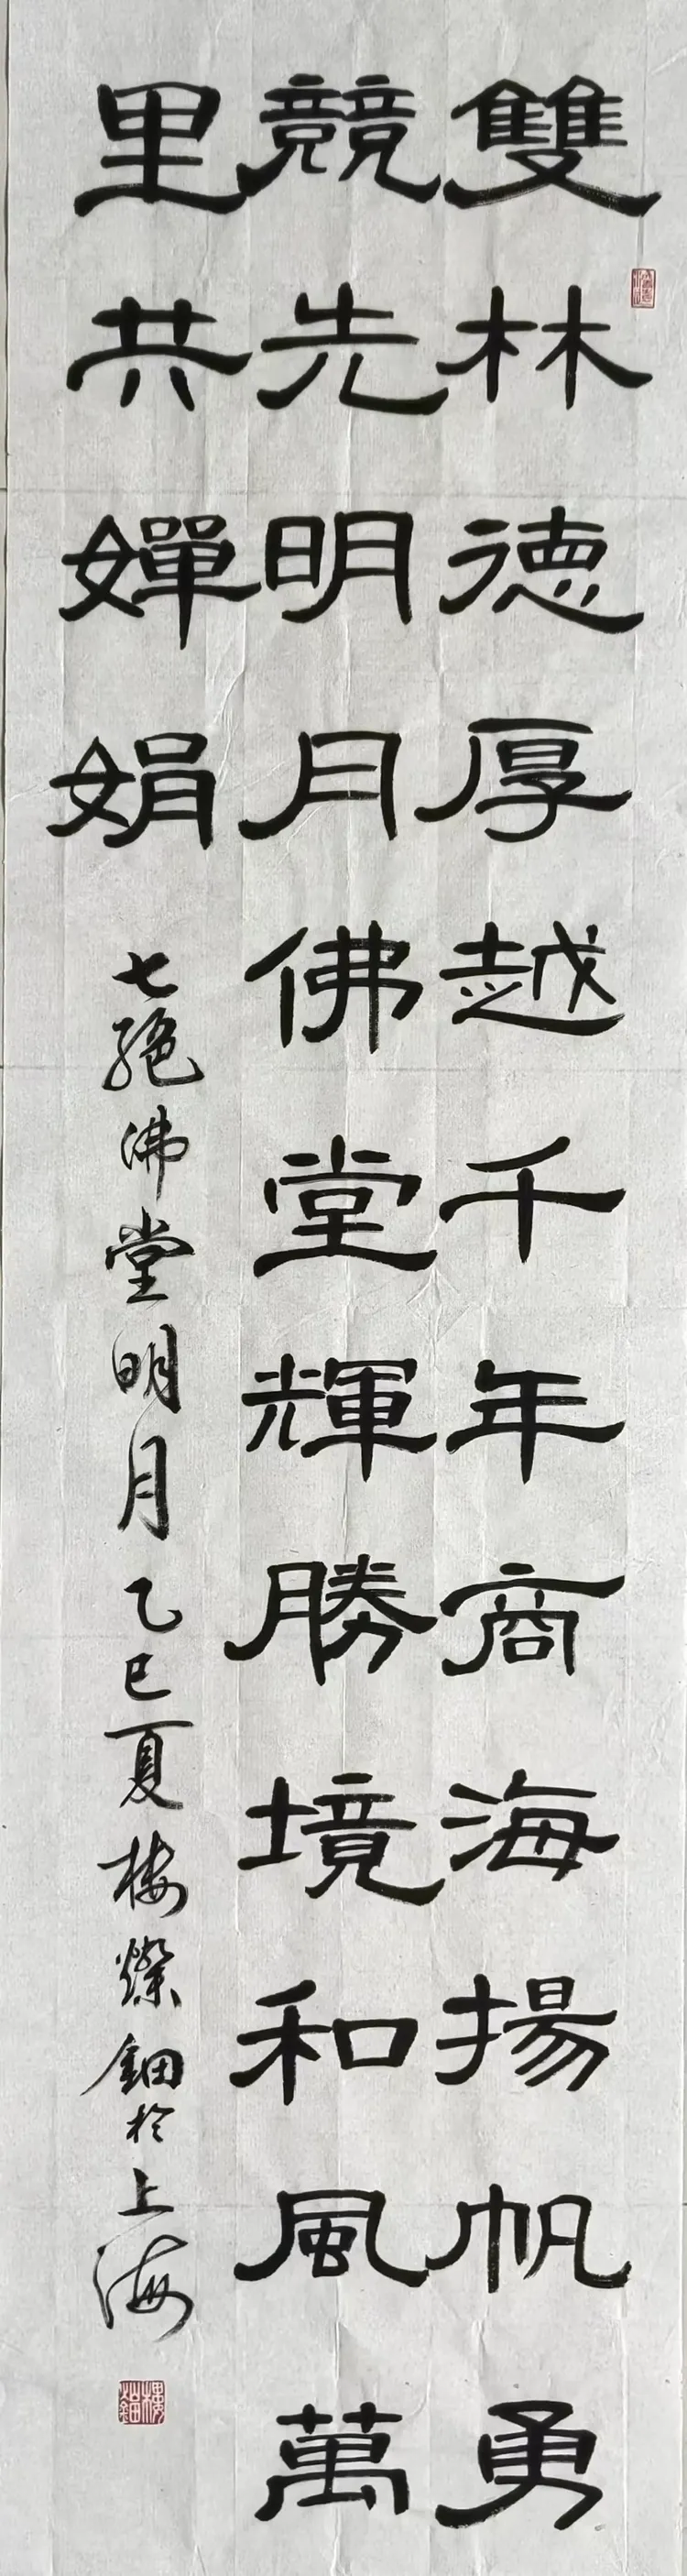 雙林德厚越千年商海揚帆勇
競先明月佛堂輝勝境和風萬
里共嬋娟
七絕佛堂明月乙巳夏楼燦鈿於上海